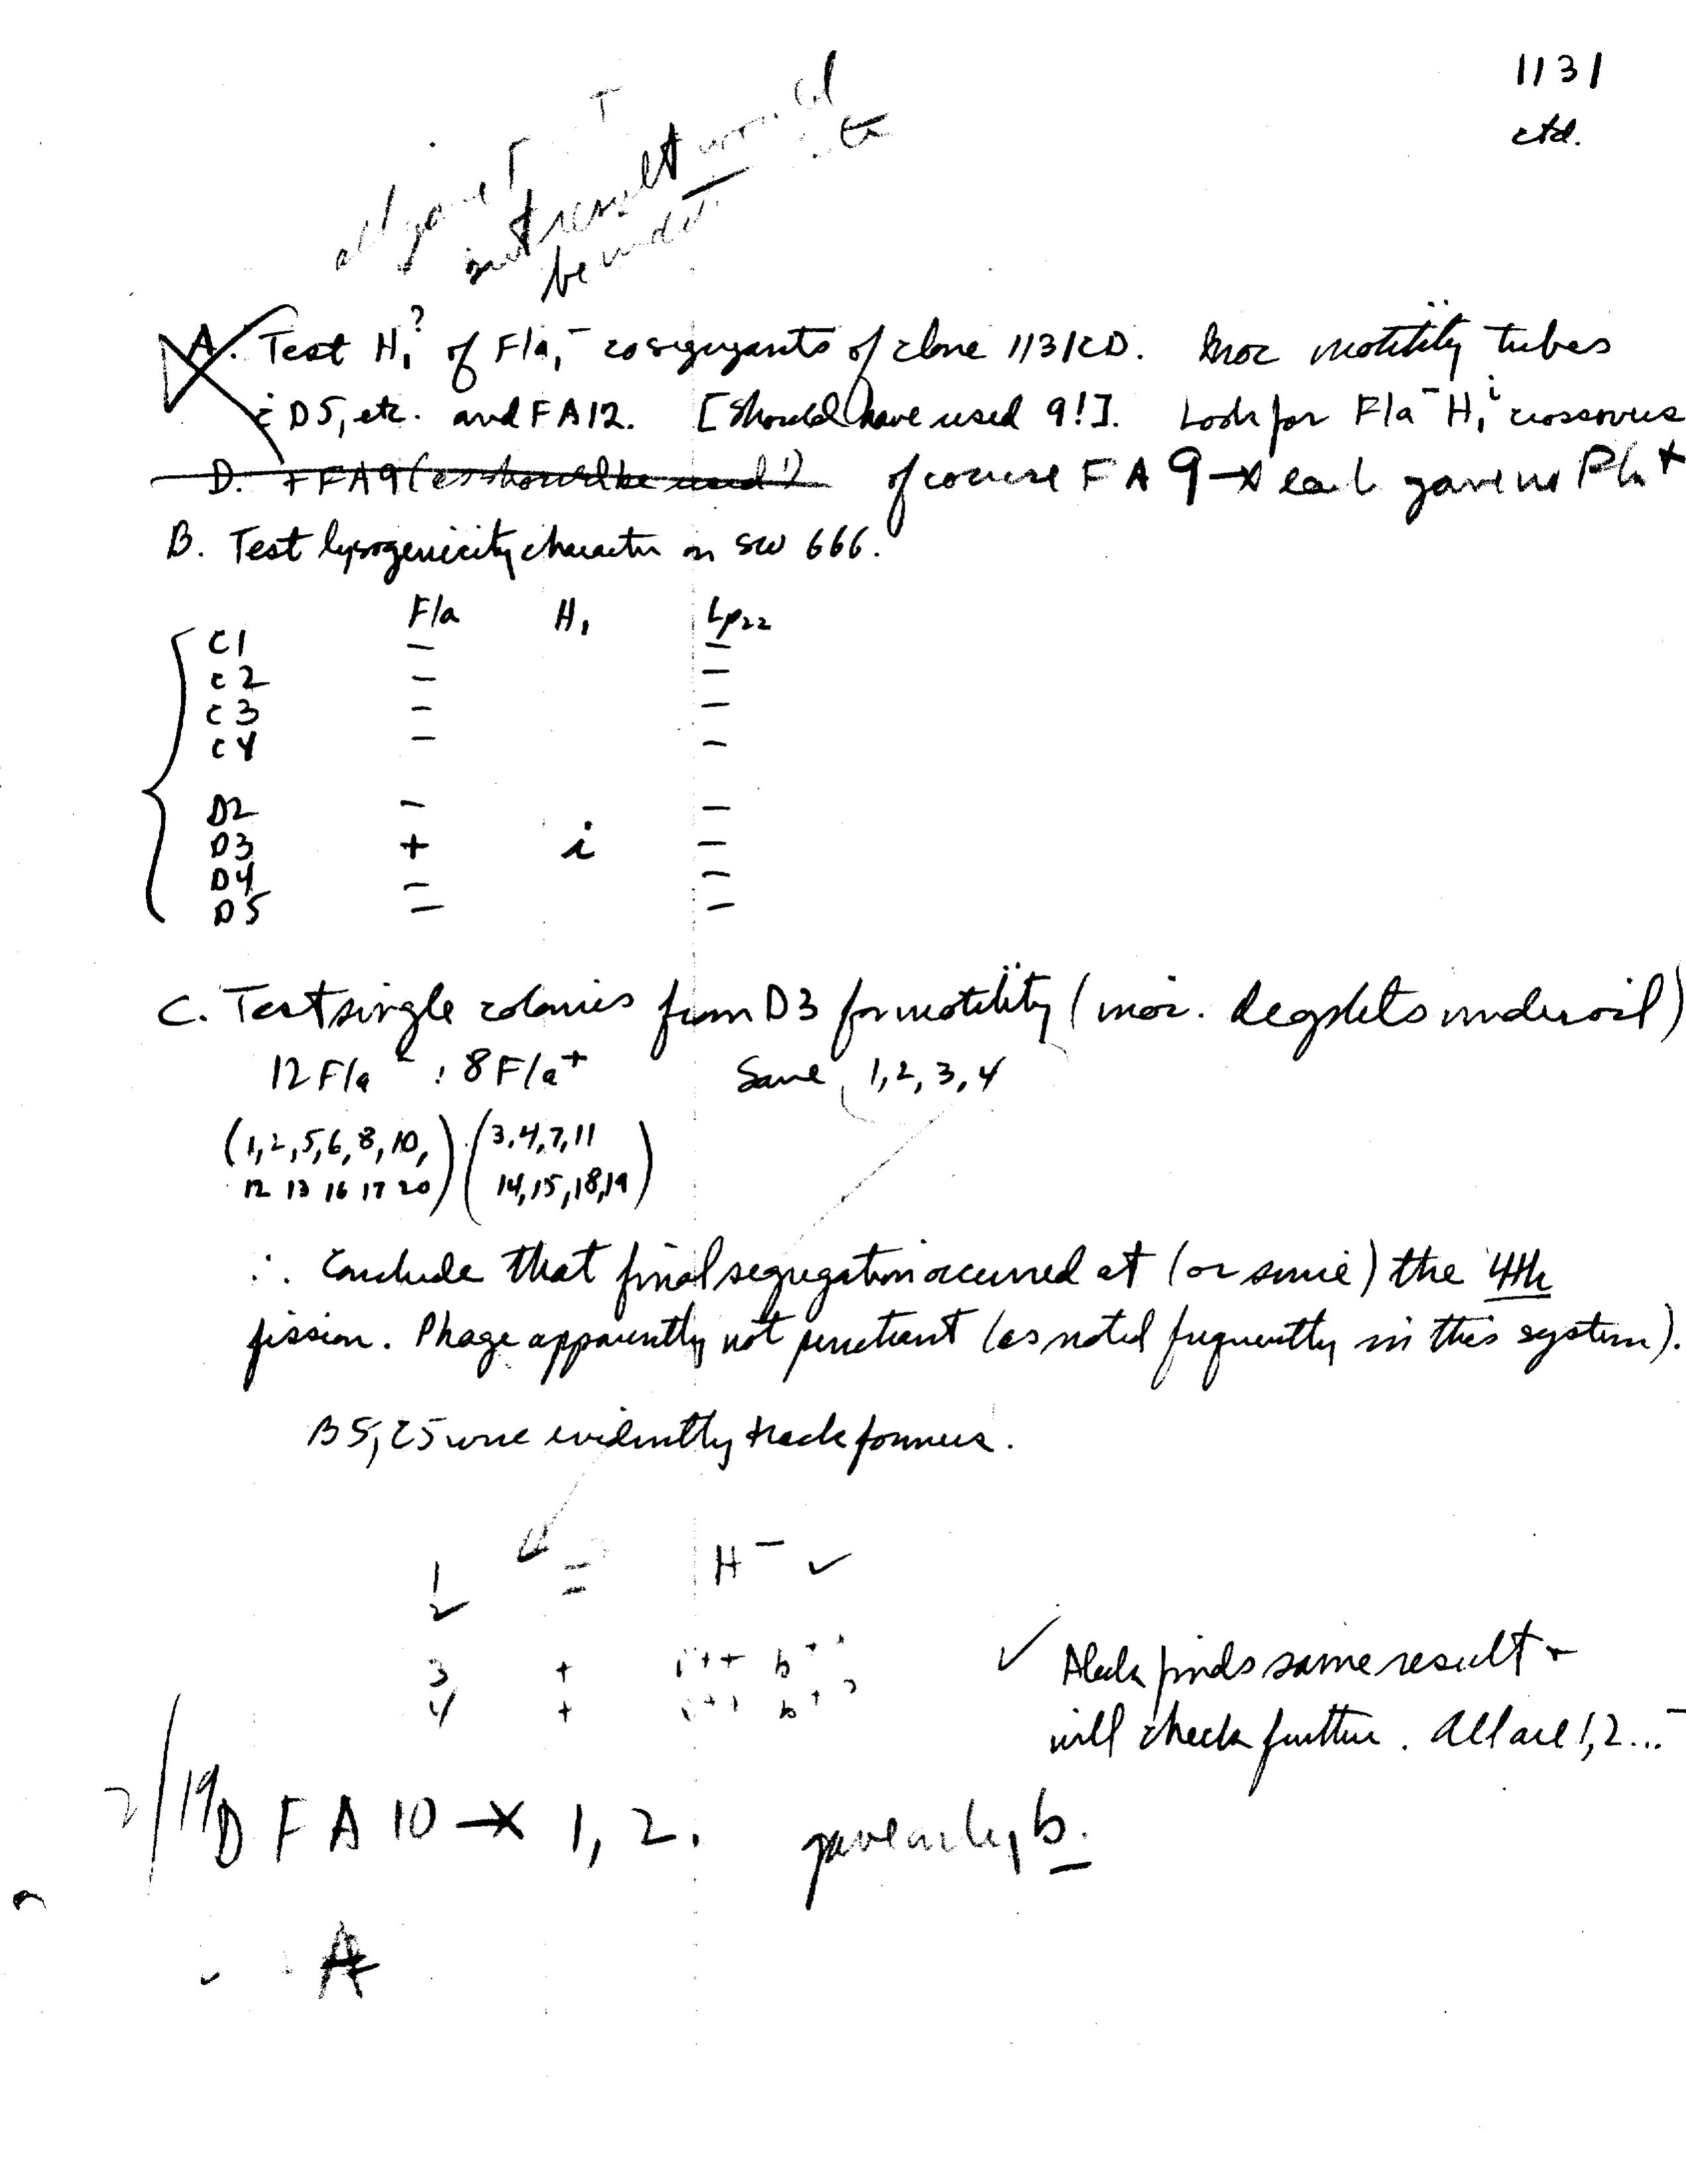 1131
ctd.
all gave
but result
be
A. Test H₁? of Fla₁⁻ cosegregants of clone 1131CD. Inoc motility tubes
c̄ D5, etc. and FA12. [Should have used 9!]. Look for Fla⁻ H₁ⁱ crossovers
D. + FA9 (as should be used!) of course FA 9 —x each gave no Fla⁺
B. Test lysogenicity character on SW 666.
Fla H₁ Lp₂₂
C1 − −
C2 − −
C3 − −
C4 − −
D2 − −
D3 + i −
D4 − −
D5 − −
C. Test single colonies from D3 for motility (inoc. droplets under oil)
12 Fla⁻ : 8 Fla⁺ Save 1, 2, 3, 4
(1, 2, 5, 6, 8, 10, (3, 4, 7, 11
12 13 16 17 20) 14, 15, 18, 19)
∴ Conclude that final segregation occurred at (or since) the 4th
fission. Phage apparently not penetrant (as noted frequently in this system).
B5, C5 were evidently track formers.
1 − H⁻ ✓
2 −
3 + i⁺⁺ b⁺⁺
4 + i⁺⁺ b⁺ ?
✓ finds same result +
will check further. All are 1, 2 ... −
2/19 D FA 10 —x 1, 2. gave only b.
A